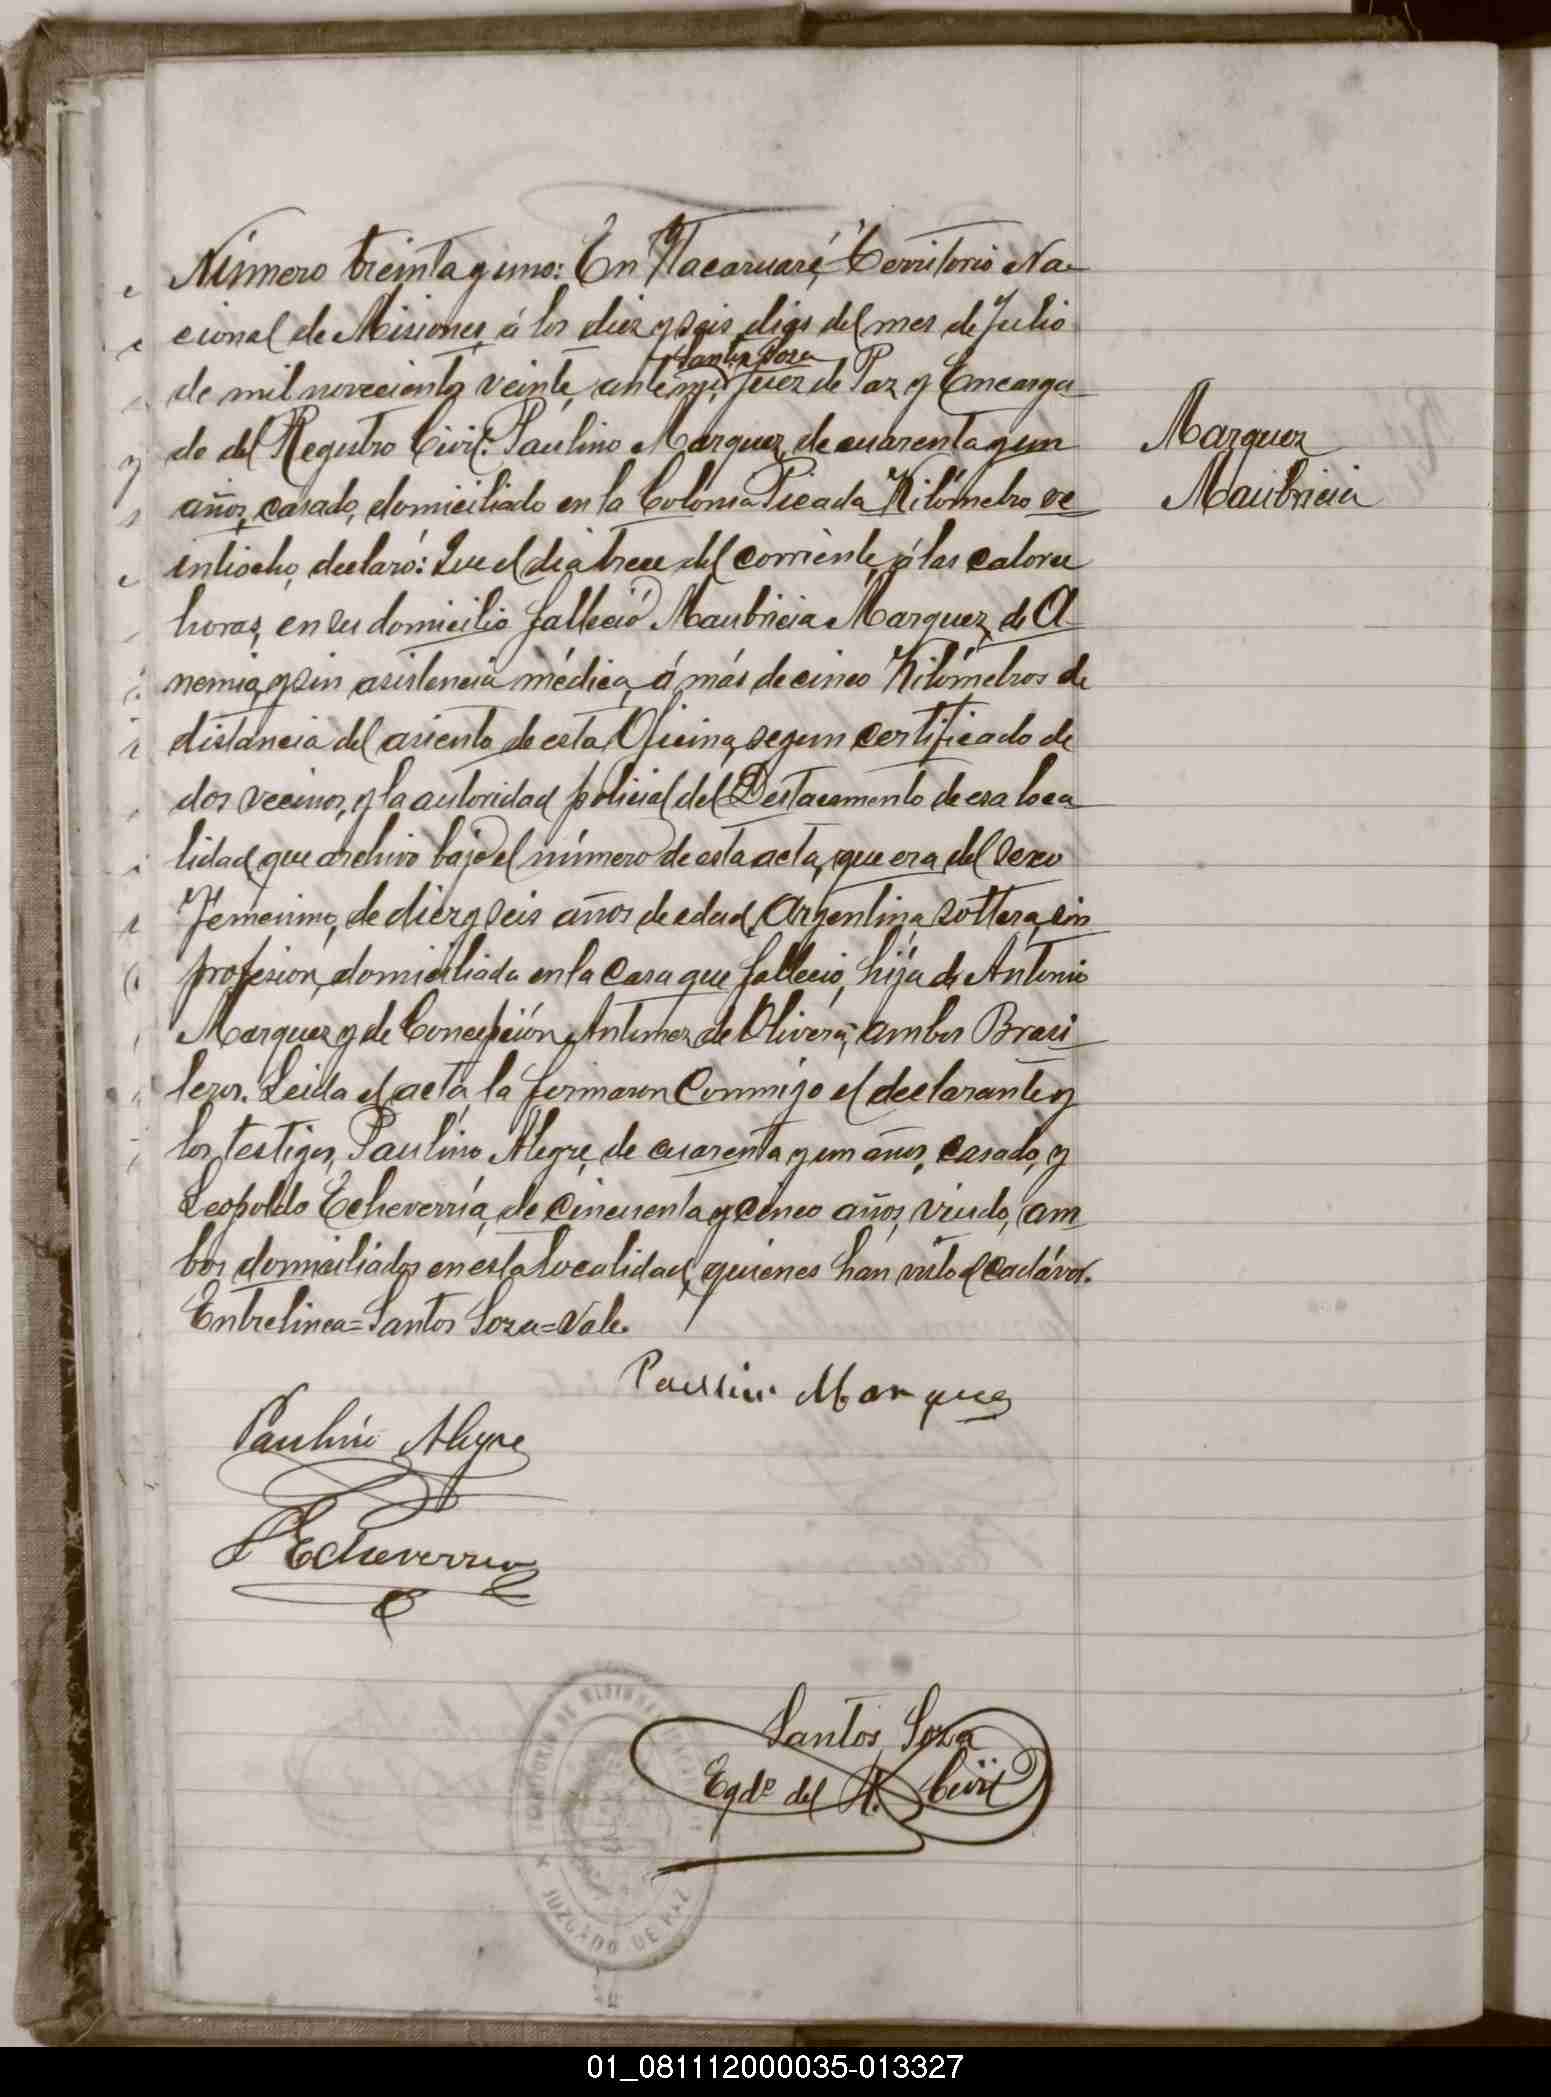 Número treinta y uno: En Itacaruaré, Territorio Na-
cional de Misiones, á los diez y seis dias del mes de Julio
Santos Soza
de mil novecientos veinte, ante mi, Juez de Paz y Encarga-
do del Registro Civil: Paulino Marquez, de cuarenta y un
años, casado, domiciliado en la Colonia Picada Kilómetro ve-
intiocho, declaró: Que el dia trece del corriente, á las catorce
horas, en su domicilio falleció Maubricia Marquez, de A-
nemia, y sin asistencia médica, á más de cinco Kilómetros de
distancia del asiento de esta Oficina, segun certificado de
dos vecinos, y la autoridad policial del Destacamento de esa loca-
lidad que archivo bajo el número de esta acta, que era del sexo
Femenino, de diez y seis años de edad, Argentina, soltera, sin
profesion, domiciliada en la casa que falleció, hija de Antonio
Marquez y de Concepción Antunez de Olivera, ambos Brasi-
leros. Leida el acta, la firmaron conmigo el declarante y
los testigos, Paulino Alegre, de cuarenta y un años, casado, y
Leopoldo Echeverría, de cincuenta y cinco años, viudo, am-
bos domiciliados en esta localidad, quienes han visto el cadáver.
Entrelinea=Santos Soza=Vale.
Marquez
Maubricia
Paulino Marquez
Paulino Alegre
L Echeverria
Santos Soza
Egdo del R. Civil
TERRITORIO DE MISIONES
JUZGADO DE PAZ
01_081112000035-013327